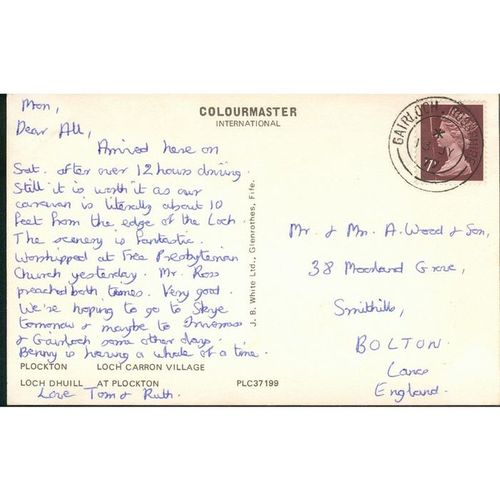 Mon,
Dear All,
Arrived here on
Sat. after over 12 hours driving.
Still it is worth it as our
caravan is literally about 10
feet from the edge of the Loch.
The scenery is fantastic.
Worshipped at Free Presbyterian
Church yesterday. Mr. Ross
preached both times. Very good.
We're hoping to go to Skye
tomorrow & maybe to Inverness
& Gairloch some other days.
Benny is having a whale of a time.
PLOCKTON LOCH CARRON VILLAGE
LOCH DHUILL AT PLOCKTON PLC37199
Love Tom & Ruth.
COLOURMASTER
INTERNATIONAL
J. B. White Ltd., Glenrothes, Fife.
GAIRLOCH
Mr. & Mrs. A. Wood & Son,
38 Moorland Grove,
Smithills,
BOLTON
Lancs
England.